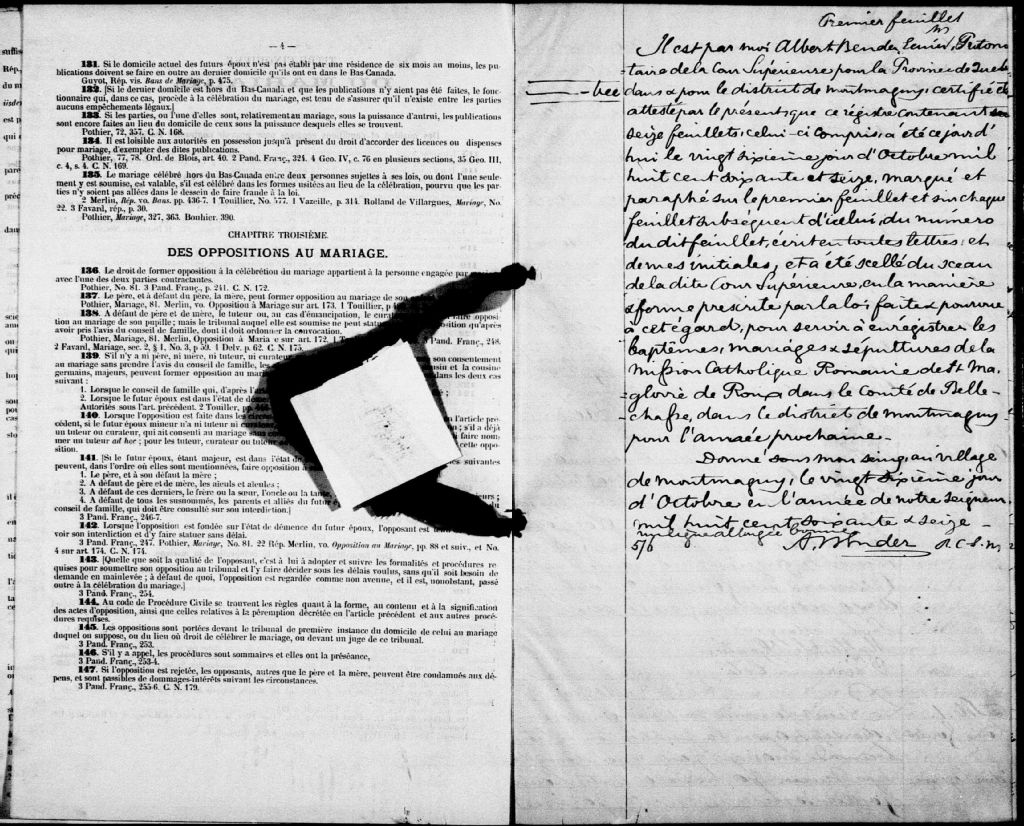 — 4 —
131. Si le domicile actuel des futurs époux n'est pas établi par une résidence de six mois au moins, les pu-
blications doivent se faire en outre au dernier domicile qu'ils ont eu dans le Bas Canada.
Guyot, Rép. vis. Bans de Mariage, p. 475.
132. [Si le dernier domicile est hors du Bas-Canada et que les publications n'y aient pas été faites, le fonc-
tionnaire qui, dans ce cas, procède à la célébration du mariage, est tenu de s'assurer qu'il n'existe entre les parties
aucuns empêchements légaux.]
133. Si les parties, ou l'une d'elles sont, relativement au mariage, sous la puissance d'autrui, les publications
sont encore faites au lieu du domicile de ceux sous la puissance desquels elles se trouvent.
Pothier, 72, 357. C. N. 168.
134. Il est loisible aux autorités en possession jusqu'à présent du droit d'accorder des licences ou dispenses
pour mariage, d'exempter des dites publications.
Pothier, 77, 78. Ord. de Blois, art. 40. 2 Pand. Franç., 324. 4 Geo. IV, c. 76 en plusieurs sections, 35 Geo. III,
c. 4, s. 4. C. N. 169.
135. Le mariage célébré hors du Bas-Canada entre deux personnes sujettes à ses lois, ou dont l'une seule-
ment y est soumise, est valable, s'il est célébré dans les formes usitées au lieu de la célébration, pourvu que les par-
ties n'y soient pas allées dans le dessein de faire fraude à la loi.
2 Merlin, Rép. vo. Bans. pp. 436-7. 1 Toullier, No. 577. 1 Vazeille, p. 314. Rolland de Villargues, Mariage, No.
22. 3 Favard, rép., p. 30.
Pothier, Mariage, 327, 363. Bouhier. 390.
CHAPITRE TROISIÈME.
DES OPPOSITIONS AU MARIAGE.
136. Le droit de former opposition à la célébrétion du mariage appartient à la personne engagée par
avec l'une des deux parties contractantes.
Pothier, No. 81. 3 Pand. Franç., p. 241. C. N. 172.
137. Le père, et à défaut du père, la mère, peut former opposition au mariage de son
Pothier, Mariage, 81. Merlin, vo. Opposition à Mariage sur art. 173. 1 Touillier, p
138. A défaut de père et de mère, le tuteur ou, au cas d'émancipation, le cura
tion au mariage de son pupille; mais le tribunal auquel elle est soumise ne peut statu
sition qu'après
avoir pris l'avis du conseil de famille, dont il doit ordonner la convocation.
Pothier, Mariage, 81. Merlin, Opposition à Maria e sur art. 172. 1 T
Pand. Franç., 248.
2 Favard, Mariage, sec. 2, § 1, No. 3, p 59. 1 Delv. p. 62. C. N. 175.
139. S'il n'y a ni père, ni mère, ni tuteur, ni curateur
son consentement
au mariage sans prendre l'avis du conseil de famille, les
usin et la cousine
germains, majeurs, peuvent former opposition au ma
dans les deux cas
suivant :
1. Lorsque le conseil de famille qui, d'après l'ar
2. Lorsque le futur époux est dans l'état de dém
Autorités sous l'art. précédent. 2 Touiller, pp.
140. Lorsque l'opposition est faite dans les circ
l'article pré-
cédent, si le futur époux mineur n'a ni tuteur ni cura
; s'il a déjà
un tuteur ou curateur, qui ait consenti au mariage san
faire nom-
mer un tuteur ad hoc ; pour les tuteur, curateur ou tute
cette oppo-
sition.
141. [Si le futur époux, étant majeur, est dans l'état de
suivantes
peuvent, dans l'ordre où elles sont mentionnées, faire opposition à
1. Le père, et à son défaut la mère ;
2. A défaut de père et de mère, les aieuls et aieules ;
3. A défaut de ces derniers, le frère ou la sœur, l'oncle ou la tante
4. A défaut de tous les susnommés, les parents et alliés du futur
conseil de famille, qui doit être consulté sur son interdiction.]
3 Pand. Franç., 246-7.
142. Lorsque l'opposition est fondée sur l'état de démence du futur époux, l'opposant est
voir son interdiction et d'y faire statuer sans délai.
3 Pand. Franç., 247. Pothier, Mariage, No. 81. 22 Rép. Merlin, vo. Opposition au Mariage, pp. 88 et suiv., et No.
4 sur art. 174. C. N. 174.
143. [Quelle que soit la qualité de l'opposant, c'est à lui à adopter et suivre les formalités et procédures re-
quises pour soumettre son opposition au tribunal et l'y faire décider sous les délais voulus, sans qu'il soit besoin de
demande en mainlevée ; à défaut de quoi, l'opposition est regardée comme non avenue, et il est, nonobstant, passé
outre à la célébration du mariage.]
3 Pand. Franç., 254.
144. Au code de Procédure Civile se trouvent les règles quant à la forme, au contenu et à la signification
des actes d'opposition, ainsi que celles relatives à la péremption décrétée en l'article précédent et aux autres procé-
dures requises.
145. Les oppositions sont portées devant le tribunal de première instance du domicile de celui au mariage
duquel on s'oppose, ou du lieu où doit se célébrer le mariage, ou devant un juge de ce tribunal.
3 Pand. Franç., 253.
146. S'il y a appel, les procédures sont sommaires et elles ont la préséance,
3 Pand. Franç., 253-4.
147. Si l'opposition est rejetée, les opposants, autres que le père et la mère, peuvent être condamnés aux dé-
pens, et sont passibles de dommages-intérêts suivant les circonstances.
3 Pand. Franç., 255-6. C. N. 179.
Premier feuillet
Il est par moi Albert Bender, Ecuier, Protono-
taire de la Cour Supérieure pour la Province de Que
bec dans & pour le district de Montmagny, certifié et
attesté par le présent, que ce régistre contenant
seize feuillets, celui-ci compris, a été ce jour d'
hui le vingt sixième jour d'Octobre mil
huit cent soixante et seize, marqué et
paraphé sur le premier feuillet et sur chaque
feuillet subséquent d'icelui, du numéro
du dit feuillet, écrit en toutes lettres, et
de mes initiales, et a été scellé du sceau
de la dite Cour Supérieure, en la manière
& forme prescrite par la loi faite & pourvue
à cet égard, pour servir à enrégistrer les
baptêmes, mariages & sépultures de la
Mission Catholique Romaine de St Ma-
gloire de Roux dans le Comté de Belle-
chasse, dans le district de Montmagny
pour l'année prochaine.
Donné sous mon seing, au village
de Montmagny, le vingt sixième jour
d'Octobre en l'année de notre Seigneur
mil huit cent soixante & seize -
A Bender P. C. S. M